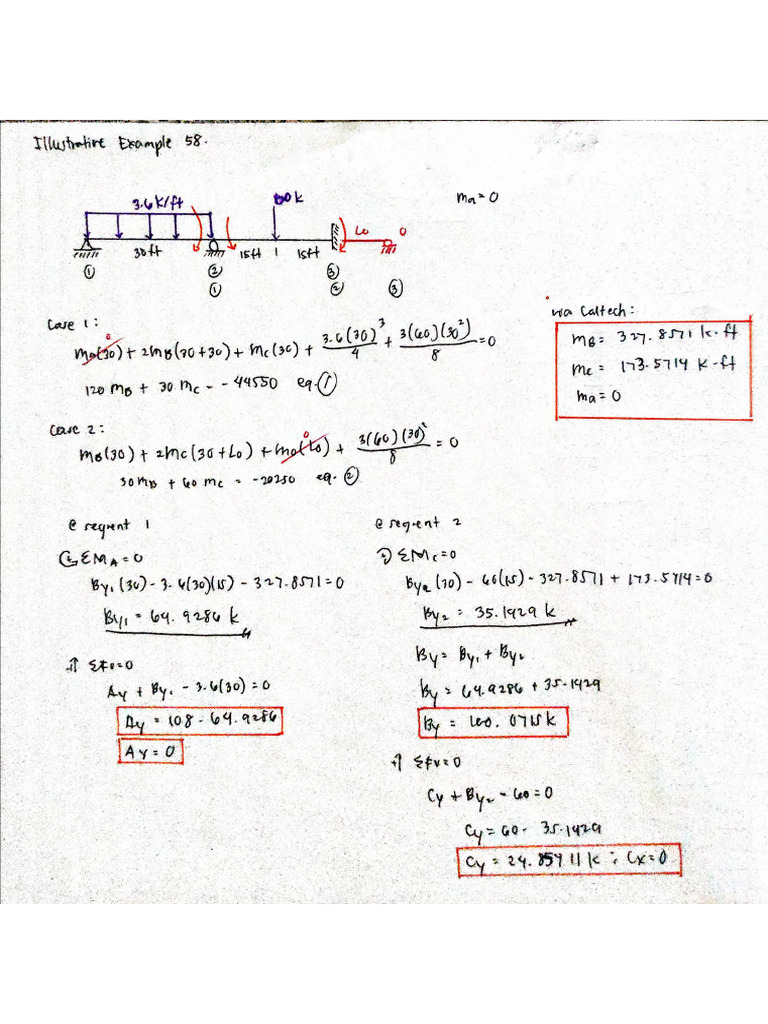 Illustrative Example 58.
3.6 k/ft
60 k
Ma = 0
Lo
0
30ft
15ft
15ft
① ② ③
① ② ③
Case 1:
MA(30) + 2MB(30+30) + MC(30) + 3.6(30)³/4 + 3(60)(30²)/8 = 0
0
120 MB + 30 MC = -44550 eq. ①
via Caltech:
MB = 327.8571 k-ft
MC = 173.5714 k-ft
Ma = 0
Case 2:
MB(30) + 2MC(30+Lo) + MO(Lo) + 3(60)(30)²/8 = 0
0
30MB + 60 MC = -20250 eq. ②
@ segment 1
ΣMA = 0
By1 (30) - 3.6(30)(15) - 327.8571 = 0
By1 = 64.9286 k
↑ ΣFv = 0
Ay + By1 - 3.6(30) = 0
Ay = 108 - 64.9286
Ax = 0
@ segment 2
ΣMC = 0
By2 (30) - 60(15) - 327.8571 + 173.5714 = 0
By2 = 35.1429 k
By = By1 + By2
By = 64.9286 + 35.1429
By = 100.0715 k
↑ ΣFv = 0
Cy + By2 - 60 = 0
Cy = 60 - 35.1429
Cy = 24.85711 k ; Cx = 0